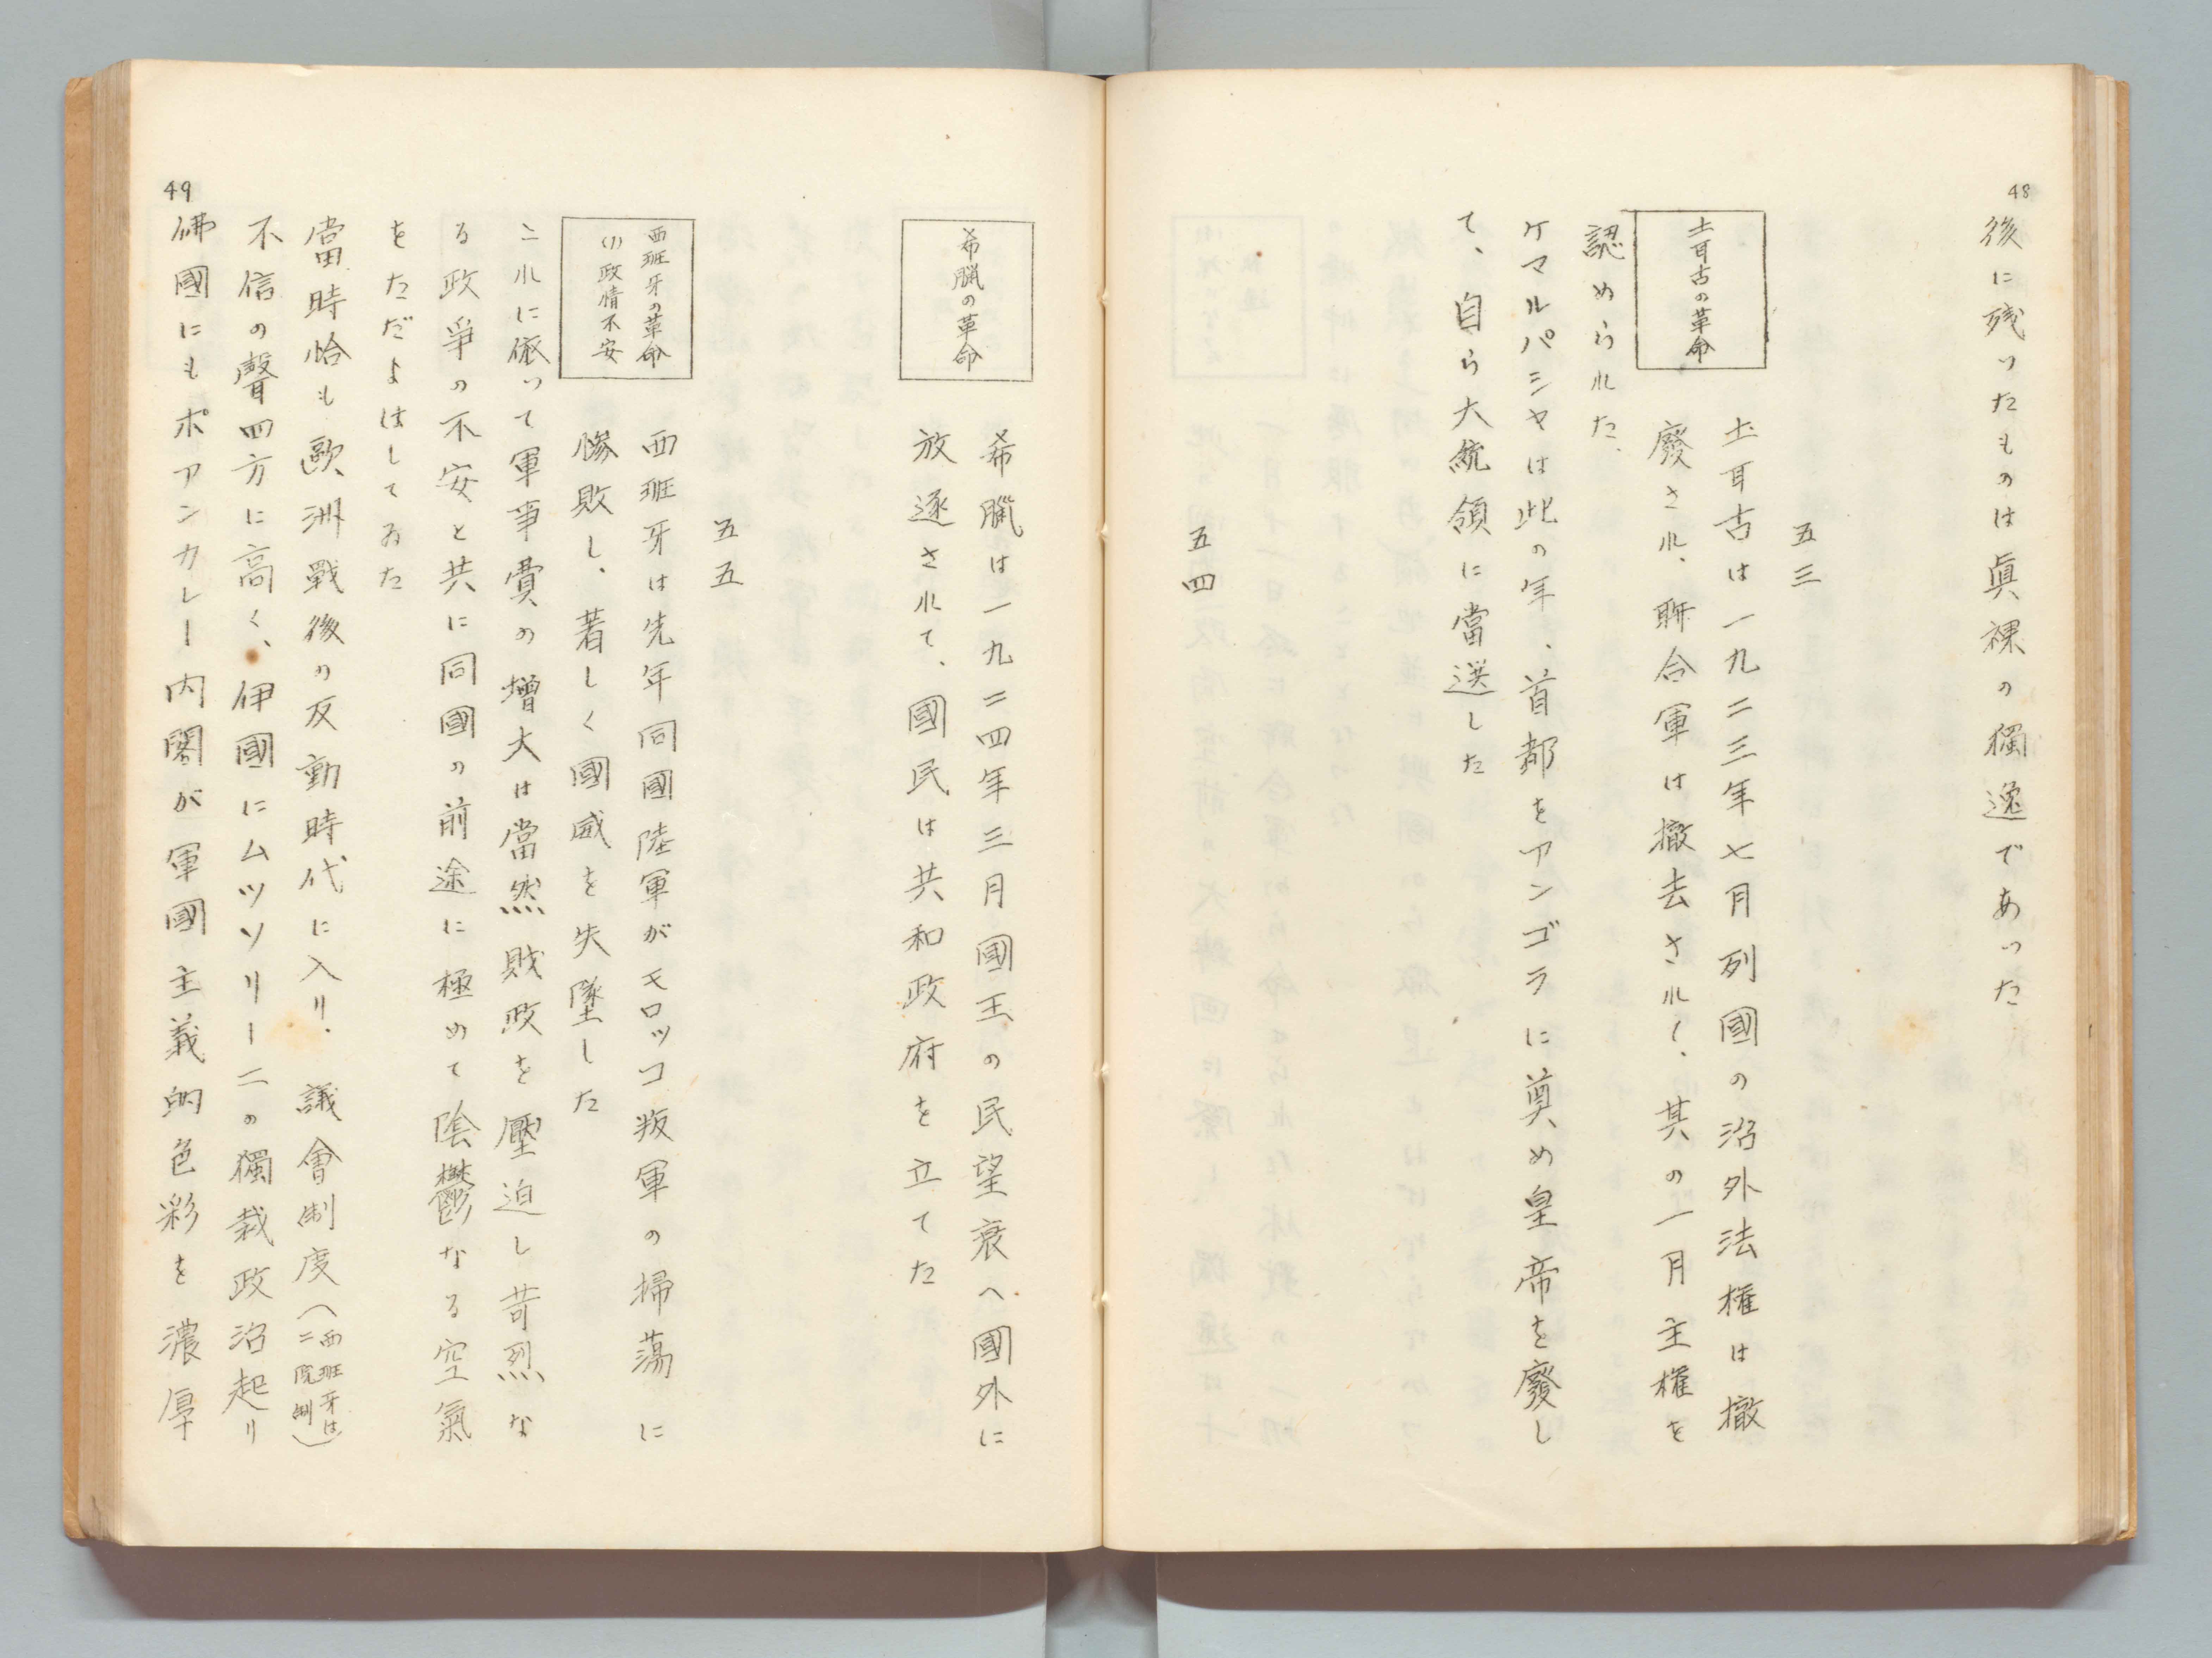 48
後に残ったものは眞裸の獨逸であった
五三
土耳古の革命
土耳古は一九二三年七月列國の治外法權は撤
廢され、聯合軍は撤去され、其の一月主權を
認められた、
ケマルパシヤは此の年、首都をアンゴラに奠め皇帝を廢し
て、自ら大統領に當選した
五四
希臘の革命
希臘は一九二四年三月國王の民望衰へ國外に
放逐されて、國民は共和政府を立てた
五五
西班牙の革命
(1)政情不安
西班牙は先年同國陸軍がモロッコ叛軍の掃蕩に
慘敗し、著しく國威を失墜した
これに依って軍事費の增大は當然財政を壓迫し苛烈な
る政爭の不安と共に同國の前途に極めて陰鬱なる空氣
をただよはしてゐた
當時恰も歐洲戰後の反動時代に入り、議會制度(西班牙は二院制)
不信の聲四方に高く、伊國にムツソリーニの獨裁政治起り
佛國にもポアンカレー内閣が軍國主義的色彩を濃厚
49